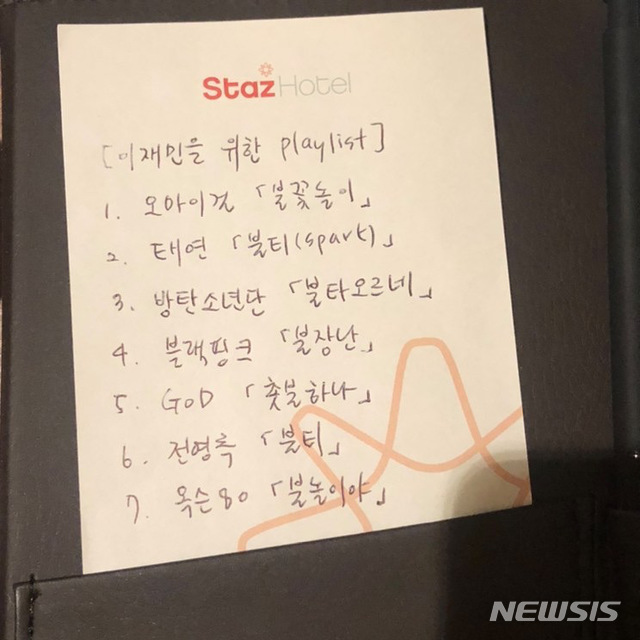 Staz Hotel
[이재민을 위한 playlist]
1. 오마이걸 「불꽃놀이」
2. 태연 「불티(spark)」
3. 방탄소년단 「불타오르네」
4. 블랙핑크 「불장난」
5. GOD 「촛불하나」
6. 전영록 「불티」
7. 옥슨80 「불놀이야」
NEWSIS